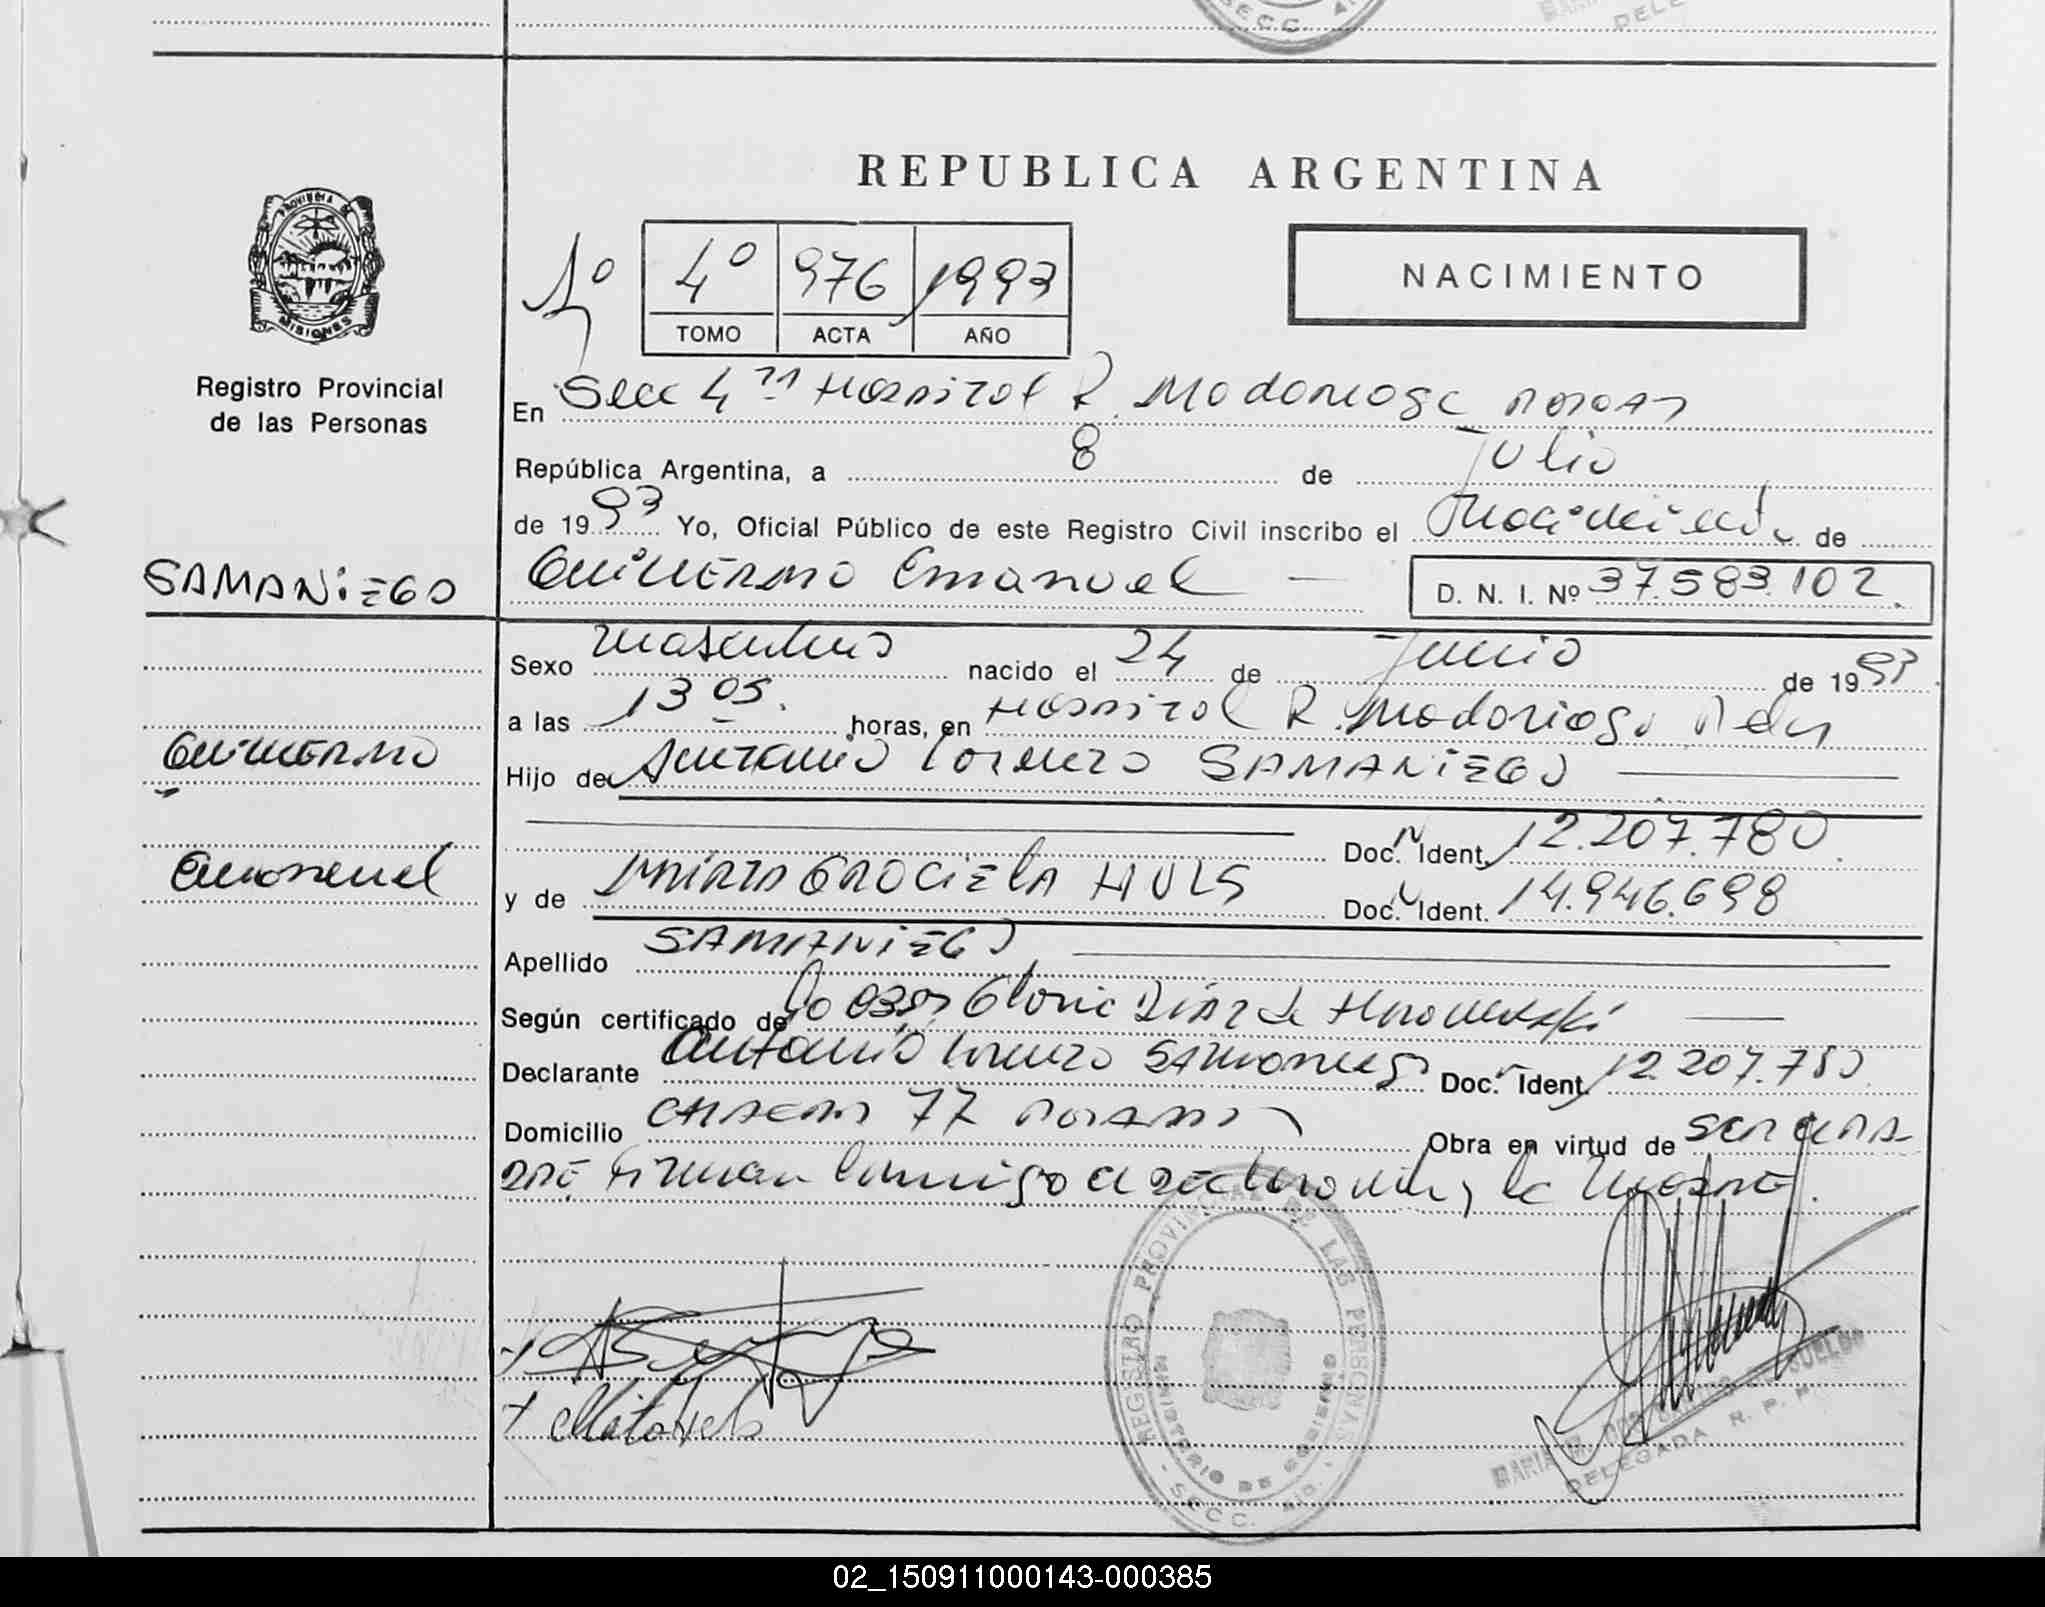 SECC. 4
DELE
REPUBLICA ARGENTINA
1º 4º 976 1993
TOMO ACTA AÑO
NACIMIENTO
PROVINCIA DE
MISIONES
Registro Provincial
de las Personas
En Secc 4ta Hospital R. Madariaga Posadas
República Argentina, a 8 de Julio
de 1993 Yo, Oficial Público de este Registro Civil inscribo el Nacimiento de
SAMANiEGO
GuillERMO Emanuel
D. N. I. Nº 37.583.102.
Sexo masculino nacido el 24 de Junio de 1993
a las 13 05. horas, en Hospital R. Madariaga Pdas
GuillERMO
Hijo de Antonio Lorenzo SAMANiEGO
Doc. N Ident. 12.207.780.
Emanuel
y de MARTA GRACiELA HULS Doc. N Ident. 14.946.698
Apellido SAMANiEGO
Según certificado de Gloria DIAZ de
Declarante Antonio Lorenzo SAMANIEGO Doc. Ident. 12.207.780.
Domicilio CHACRA 77 POSADAS Obra en virtud de SER EL PA
DRE Firman conmigo el declarante y la MADRE.
REGISTRO PROVINCIAL DE LAS PERSONAS
MINISTERIO DE GOBIERNO
SECC.
DELEGADA R. P. P.
02_150911000143-000385